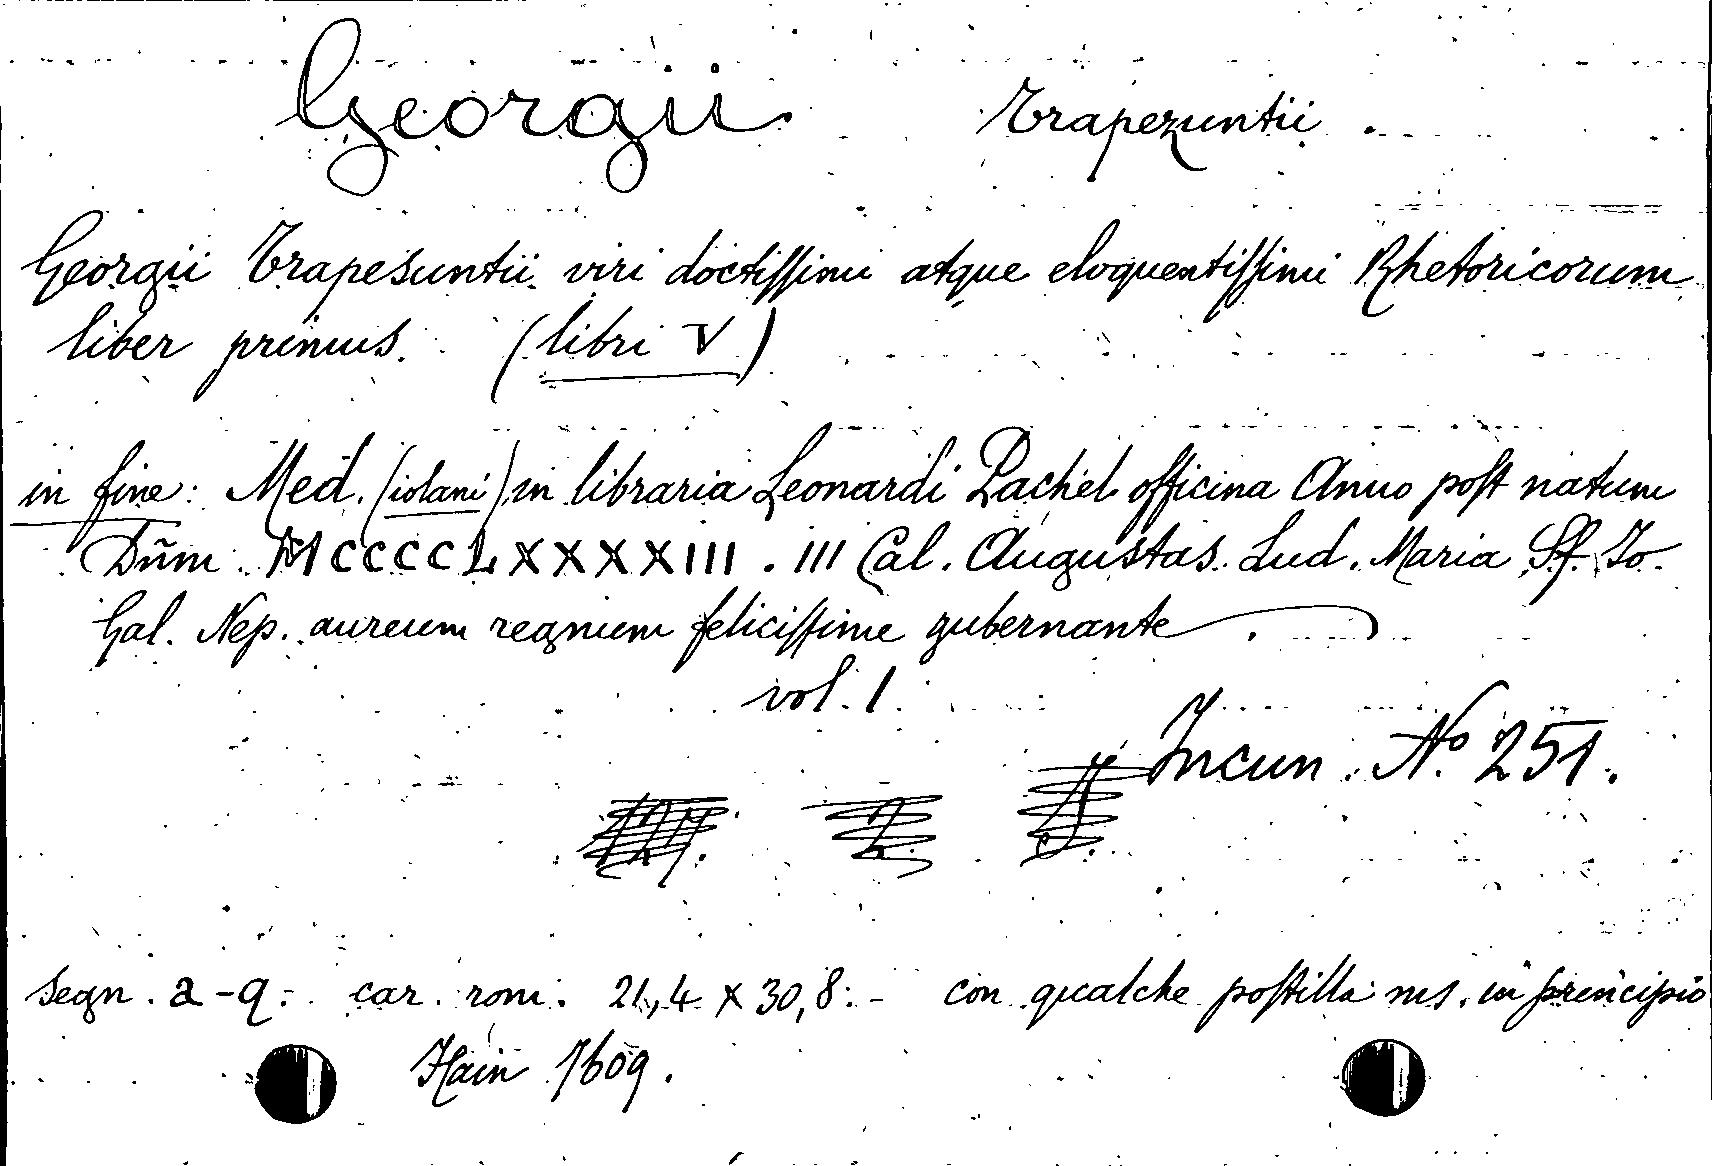 Georgii Trapezuntii.
Georgii Trapesuntii viri doctissimi atque eloquentissimi Rhetoricorum
liber primus. (libri V)
in fine: Med. (iolani) in libraria Leonardi Pachel officina Anno post natum
Dñm MCCCCLXXXXIII. III Cal. Augustas. Lud. Maria Sf. Io.
Gal. Nep. aureum regnum felicissime gubernante.
vol. 1.
Incun. Nº 251.
segn. a-q.- car. rom. 21,4 x 30,8.- con qualche postilla ms. in principio
Hain 7609.